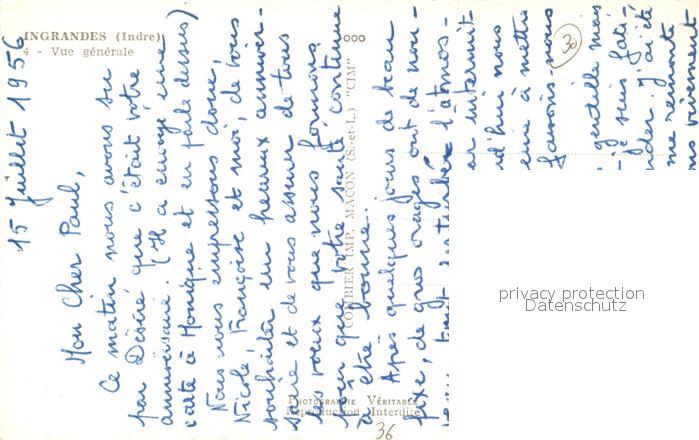 INGRANDES (Indre)
4 - Vue générale
15 juillet 1956
Mon Cher Paul,
Ce matin nous avons su
par Désiré, que c'était votre
anniversaire. (Il a envoyé une
carte à Monique et en parle dessus)
Nous nous empressons donc,
Nicole, Françoise et moi, de vous
souhaiter un heureux anniver-
saire et de vous assurer de tous
les voeux que nous formons
pour que votre santé continue
à être bonne.
Après quelques jours de beau
fixe, de gros orages ont de nou-
l'atmos-
interrut
nd'hui nous
à mettre
faisons-nous
gentille mais
je suis fati-
nder. J'ai été
me remonte
COMBIER IMP. MACON (S.-et-L.) "CIM"
PHOTOGRAPHIE VÉRITABLE
Reproduction Interdite
30
36
privacy protection
Datenschutz